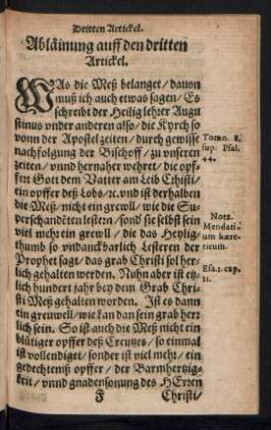 Dritten Artickel.
Ablainung auff den dritten
Artickel.
WAs die Meß belanget/ dauon
muß ich auch etwas sagen/ Es
schreibt der Heilig lehrer Augu
stinus vnder anderen also/ die Kyrch so
vonn der Apostel zeiten/ durch gewisse
nachfolgung der Bischoff/ zu vnseren
zeiten/ vnnd hernaher wehret/ die opf-
fert Gott dem Vatter am Leib Christi/
ein opffer deß Lobs/ ꝛc. vnd ist derhalben
die Meß/ nicht ein grewll/ wie die Su-
perschandẽten lestern/ sond sie selbst sein
viel nicht ein grewll/ die das Heylig-
thumb so vndanckbarlich Lesteren der
Prophet sagt/ das grab Christi sol her-
lich gehalten werden. Nuhn aber ist etz-
lich hundert jahr bey dem Grab Chri-
sti Meß gehalten worden. Ist es dann
ein greuwell/ wie kan dan sein grab herr
lich sein. So ist auch die Meß nicht ein
blütiger opffer deß Creutzes/ so einmal
ist vollendiget/ sonder ist viel mehr/ ein
gedechtenitß opffer/ der Barmhertzig-
keit/ vnnd gnadensonung des HErren
F Christi/
Tomo. 8.
sup. Psal.
44.
Nota.
Mendati-
um hære-
ticum.
Esa. 1. cap.
11.